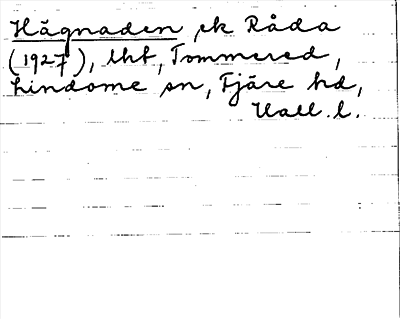 Hägnaden, ek Råda
(1927), lht, Tommered,
Lindome sn, Fjäre hd,
Hall. l.